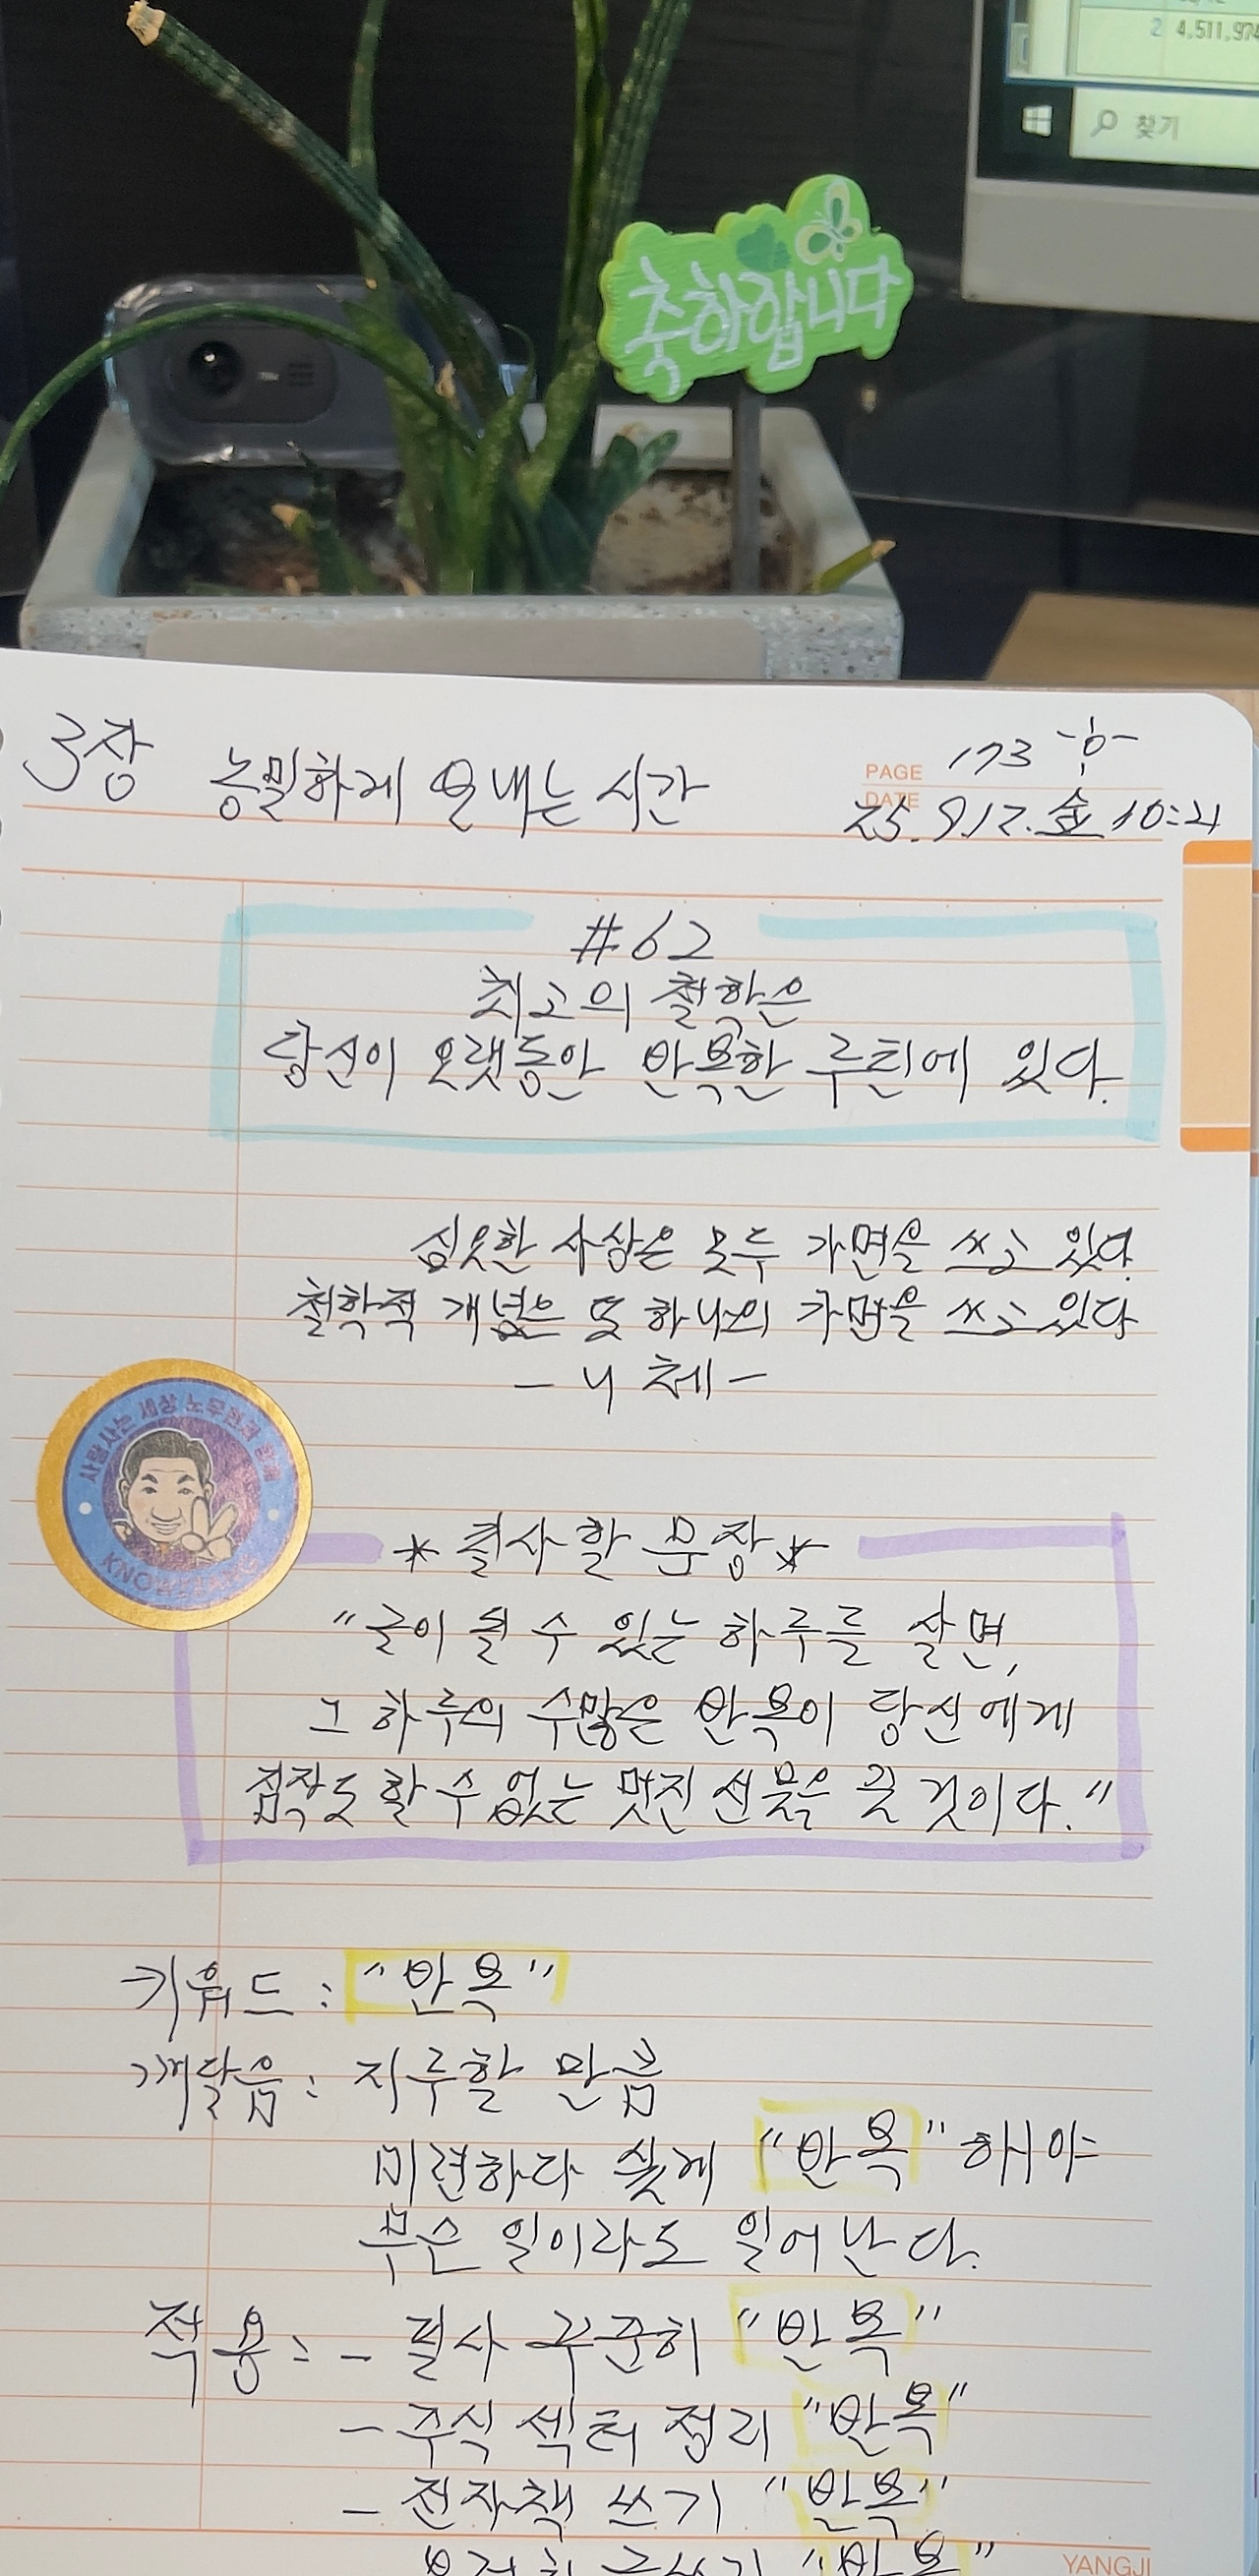 2 4,511,974
찾기
축하합니다
3장 농밀하게 보내는 시간
PAGE 173
DATE 25. 9. 12. 金 10:21
#62
최고의 철학은
당신이 오랫동안 반복한 루틴에 있다.
심오한 사상은 모두 가면을 쓰고 있다.
철학적 개념은 또 하나의 가면을 쓰고 있다
- 니체 -
사람사는 세상 노무현과 함께
KNOW
* 필사할 문장 *
"글이 될 수 있는 하루를 살면,
그 하루의 수많은 반복이 당신에게
짐작도 할 수 없는 멋진 선물을 줄 것이다."
키워드 : "반복"
깨달음 : 지루할 만큼
미련하다 싶게 "반복" 해야
무슨 일이라도 일어난다.
적용 : - 필사 꾸준히 "반복"
- 주식 섹터 정리 "반복"
- 전자책 쓰기 "반복"
글쓰기 "반복"
YANGJI